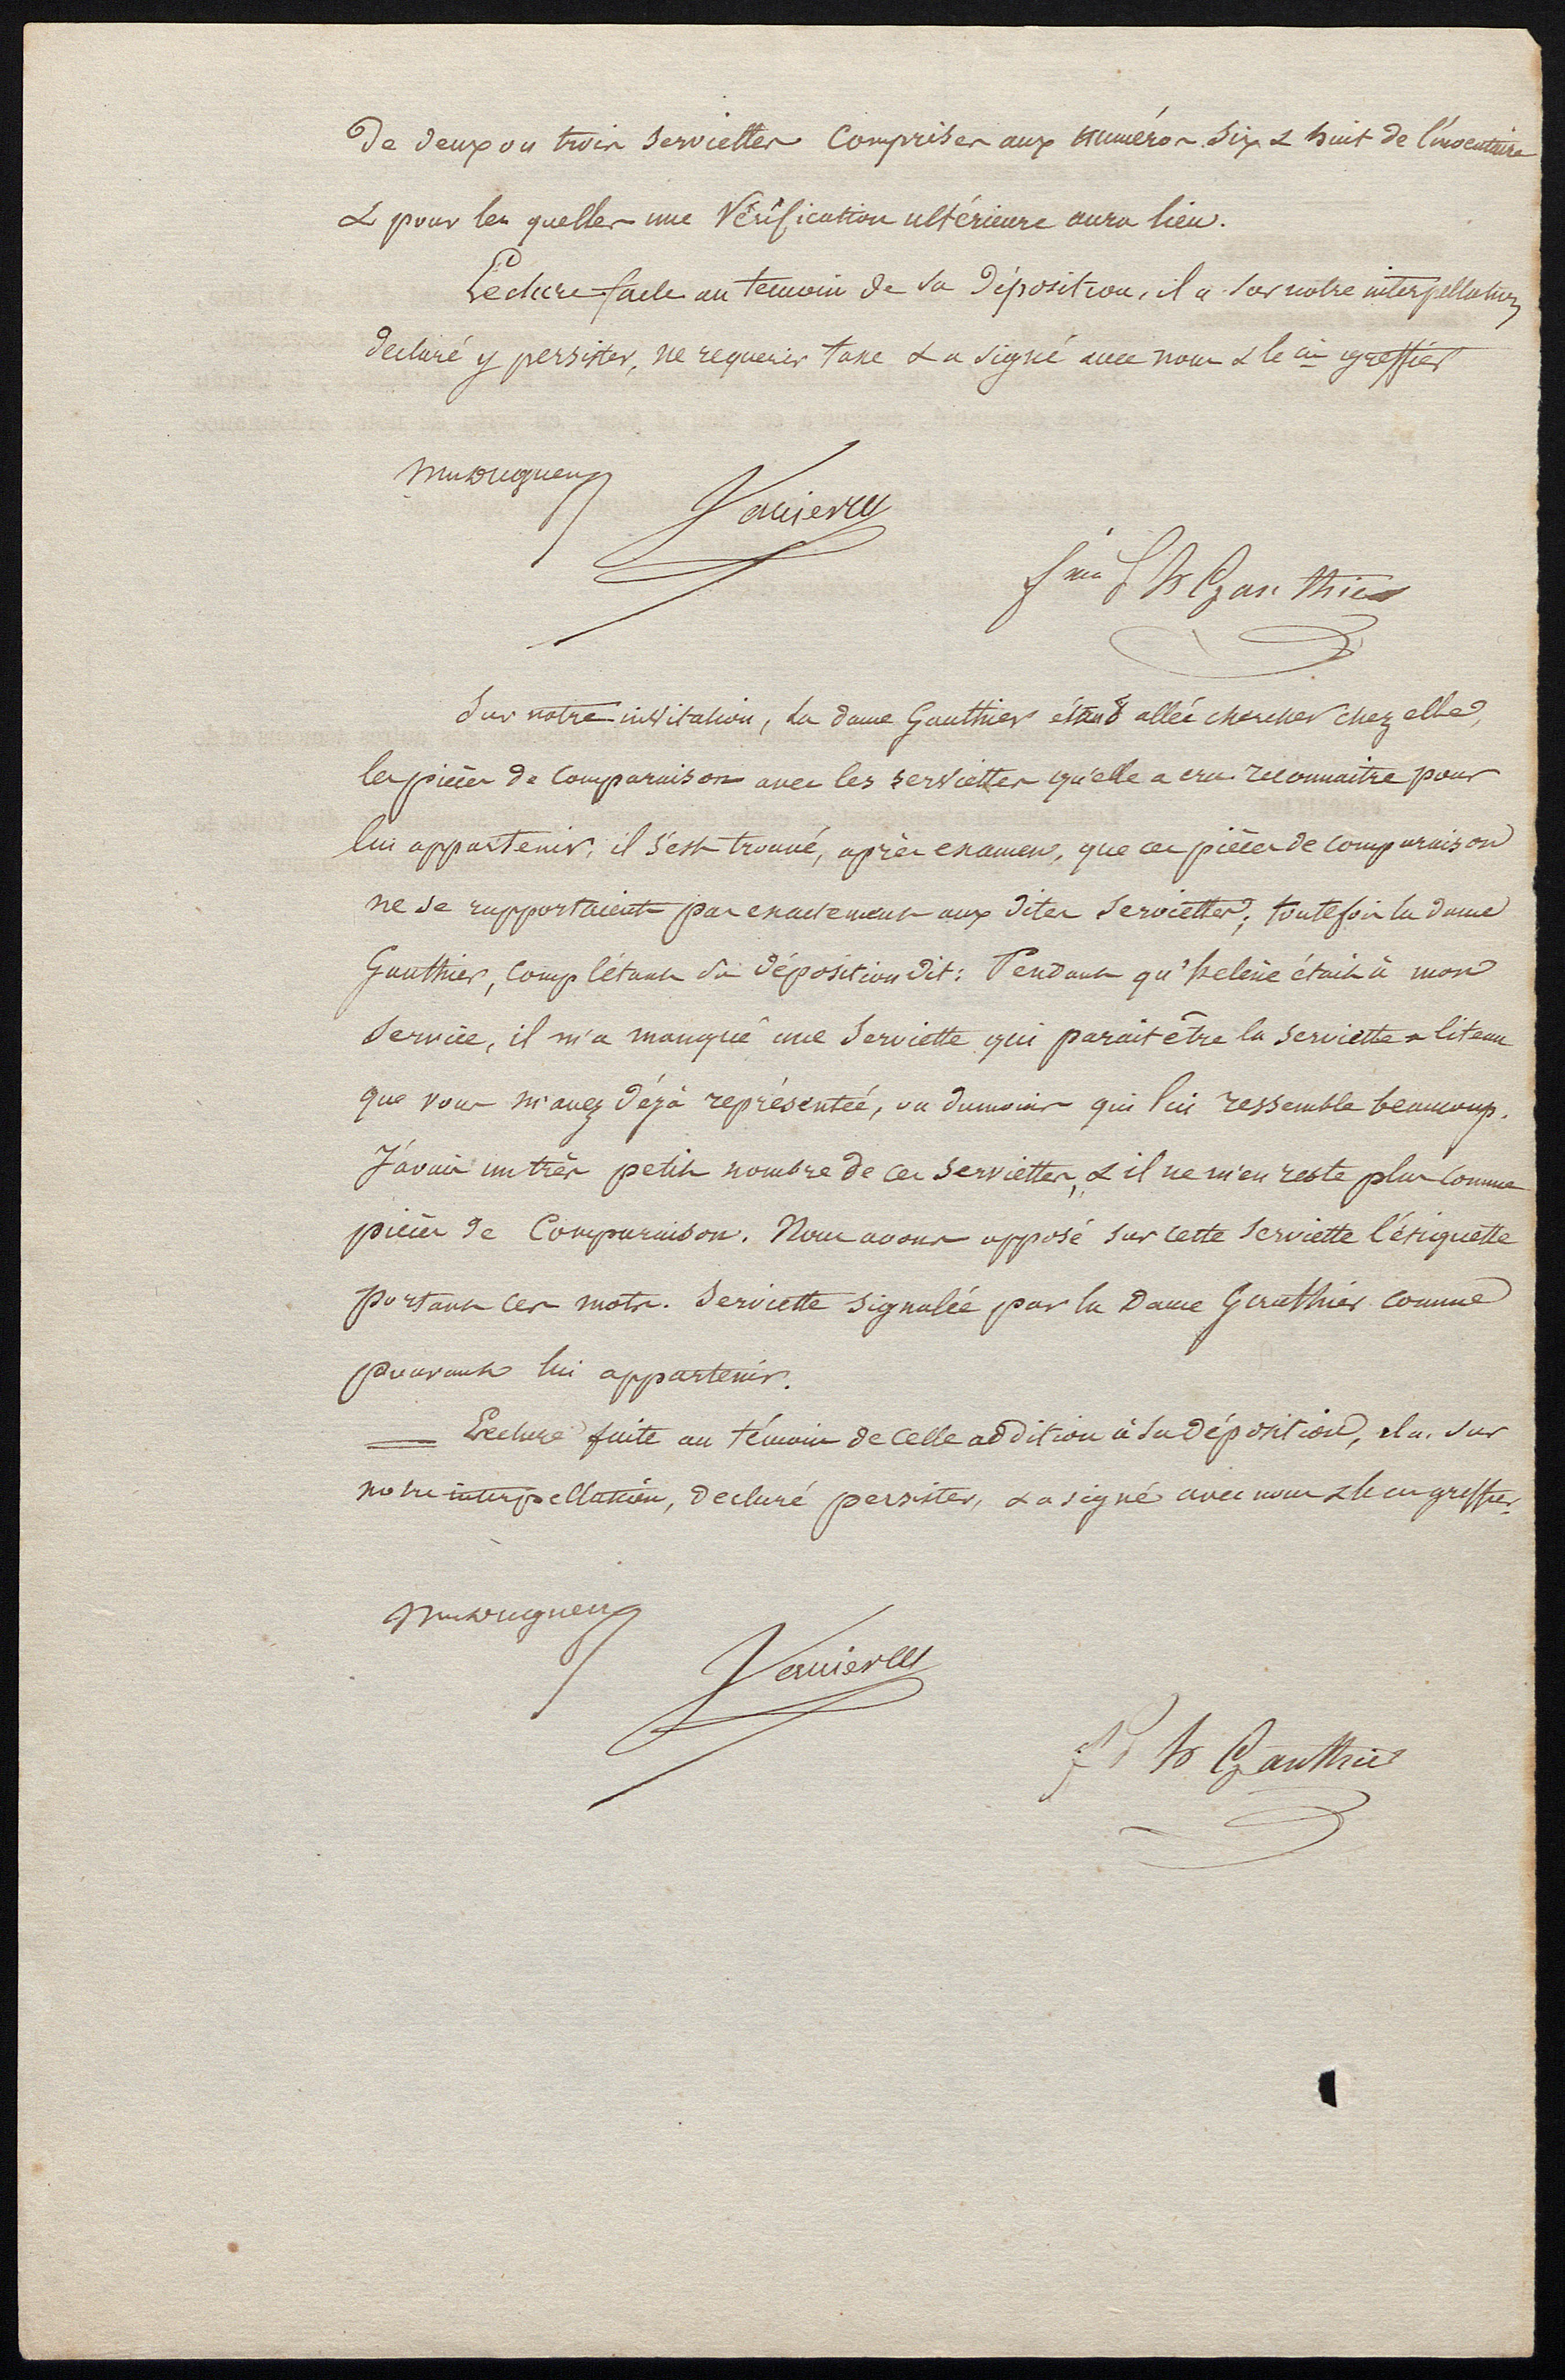 de deux ou trois serviettes comprises aux numéros six & huit de l'inventaire
& pour les quelles une vérification ultérieure aura lieu.
Lecture faite au temoin de sa déposition, il a sur notre interpellation
declaré y persister, ne requerir taxe & a signé avec nous & le c.is greffier
Vannier
fme Gauthier
Sur notre invitation, la dame Gauthier étant allée chercher chez elle,
les pièces de comparaison avec les serviettes qu'elle a cru reconnaitre pour
lui appartenir, il s'est trouvé, après examen, que ces pièces de comparaison
ne se rapportaient pas exactement aux dites serviettes; toutefois la dame
Gauthier, complétant sa déposition dit: Pendant qu'helène était à mon
service, il m'a manqué une serviette qui parait être la serviette a liteau
que vous m'avez déjà représentée, ou dumoins qui lui ressemble beaucoup.
J'avais un très petit nombre de ces serviettes, & il ne m'en reste plus comme
pièces de comparaison. Nous avons apposé sur cette serviette l'étiquette
portant ces mots. Serviette signalée par la Dame Gauthier comme
pouvant lui appartenir.
Lecture faite au témoin de cette addition à sa déposition, el a, sur
notre interpellation, declaré persister, & a signé avec nous & le c.is greffier.
Vannier
Gauthier